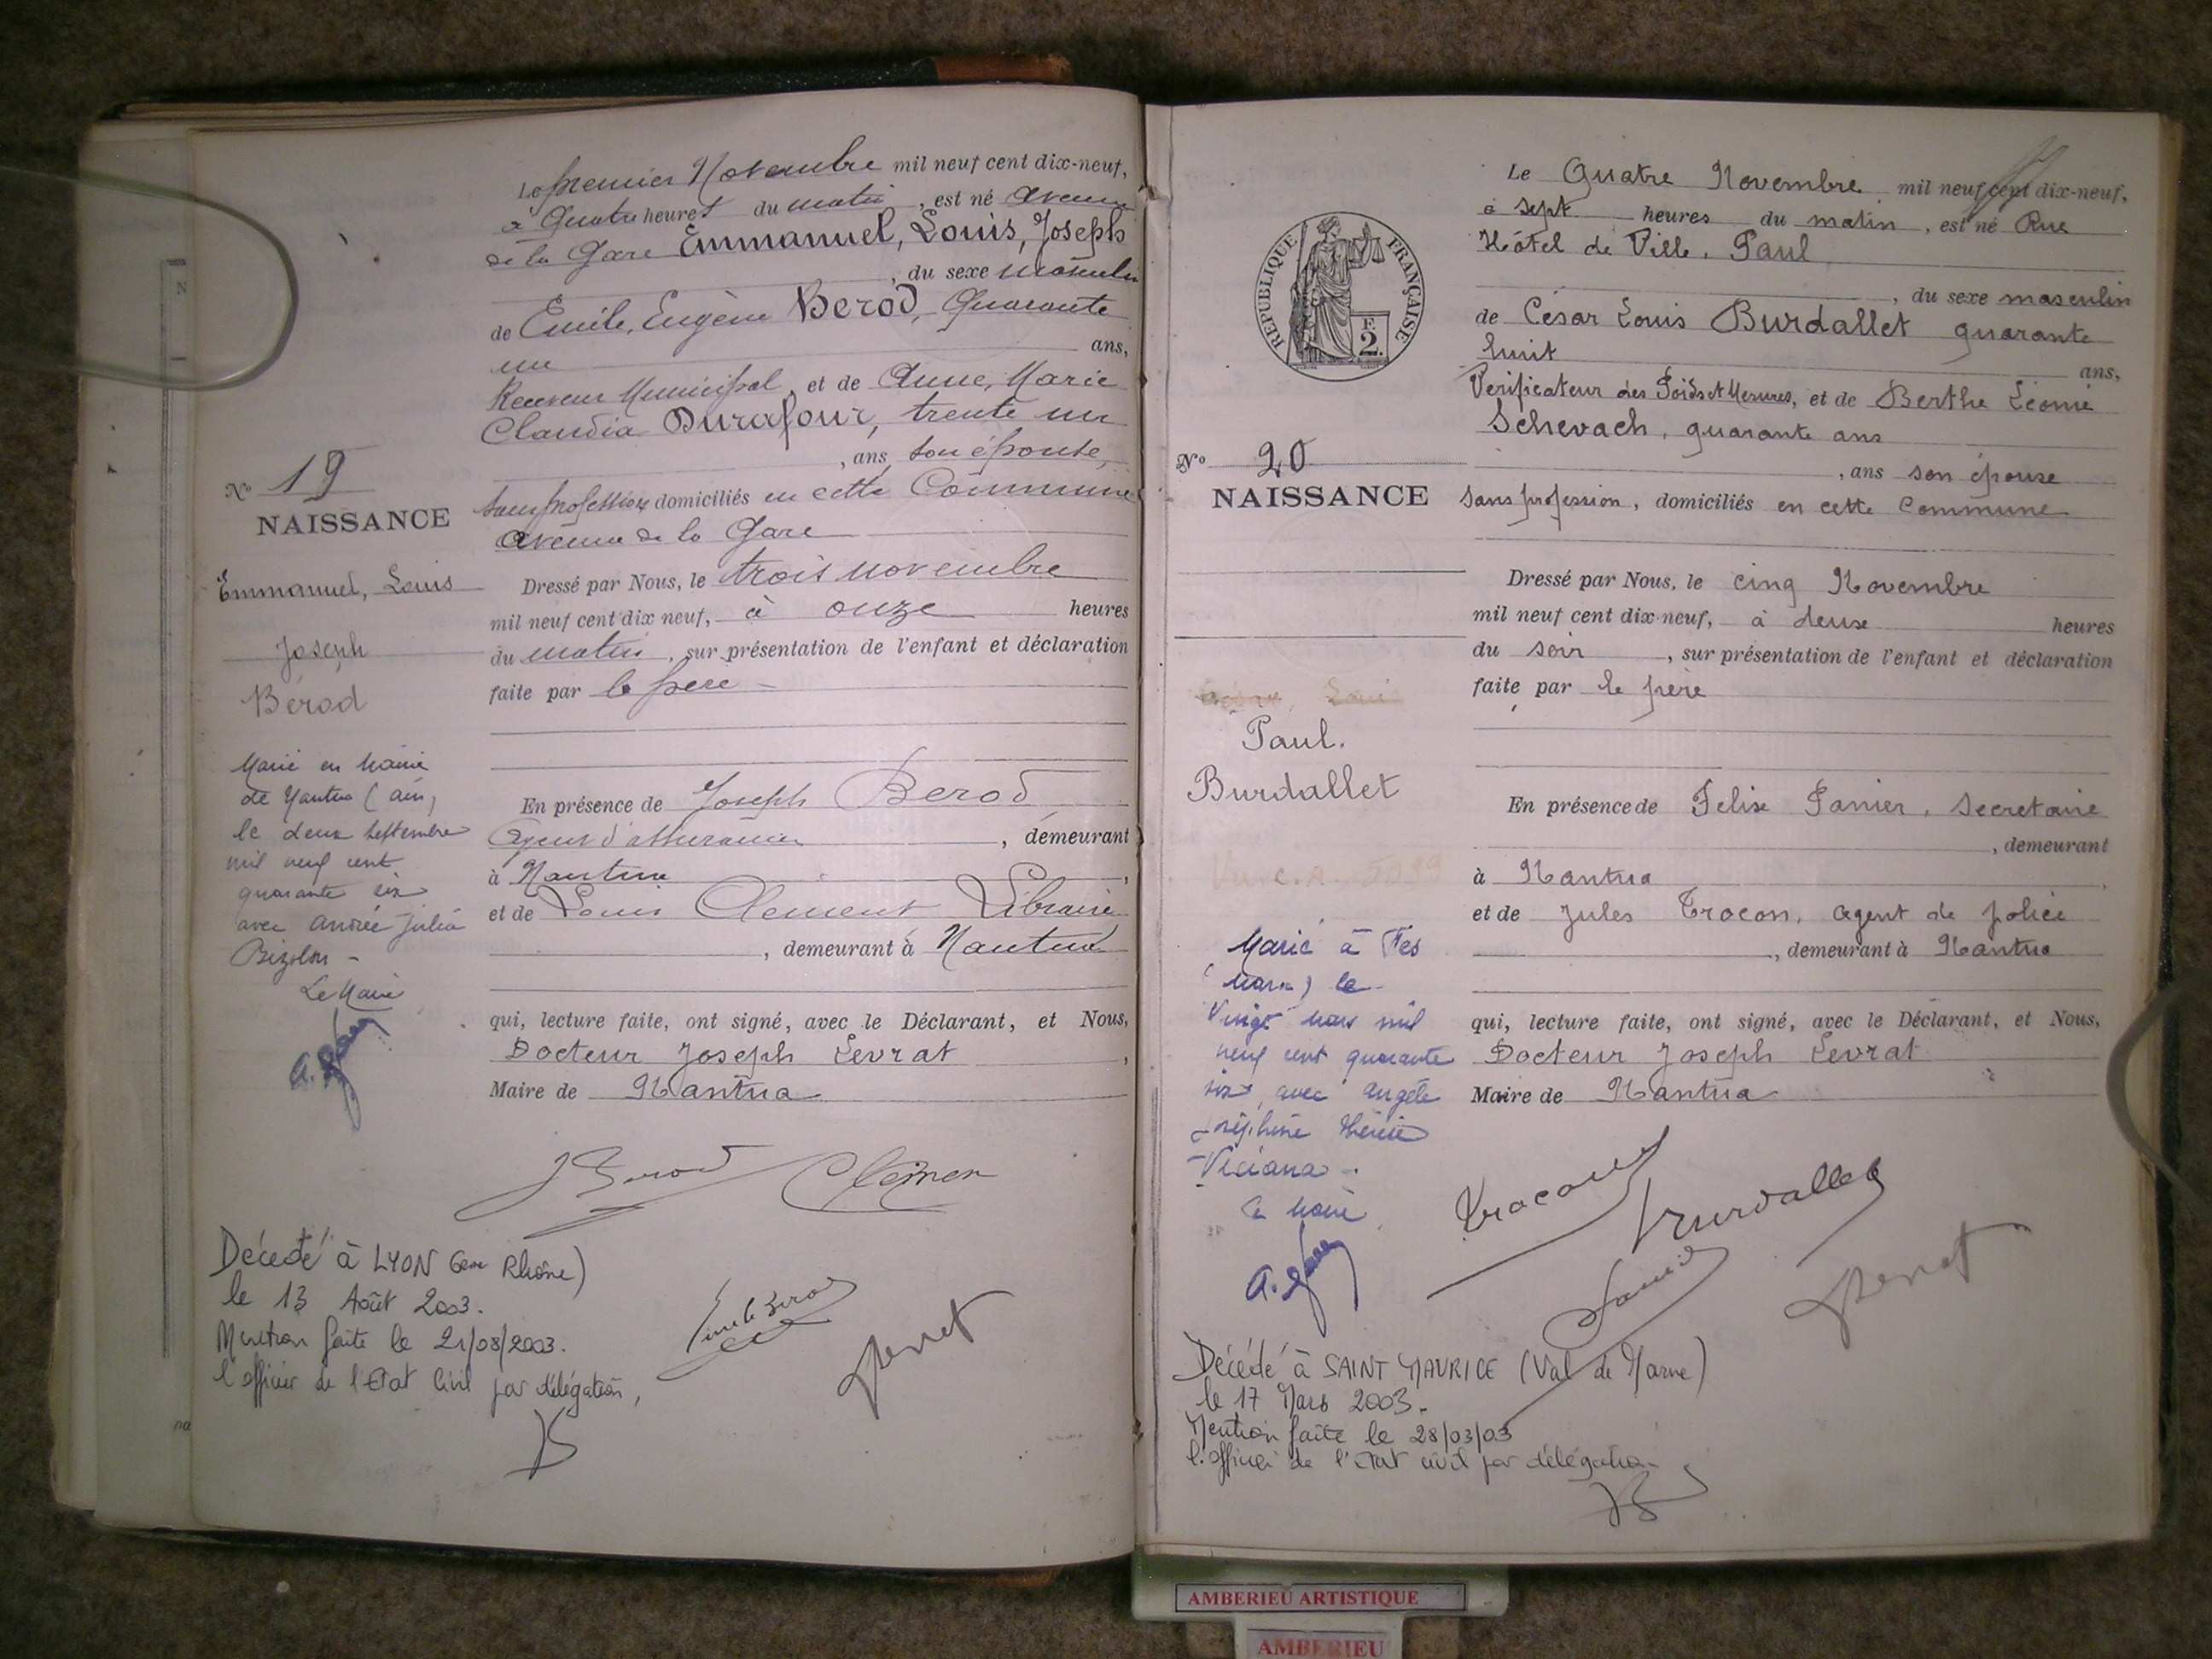 Le premier Novembre mil neuf cent dix-neuf,
à Quatre heures du matin, est né avenue
de la Gare Emmanuel, Louis, Joseph
, du sexe masculin
de Emile, Eugène Berod, Quarante
un ans,
Receveur Municipal, et de Anne, Marie
Claudia Durafour, trente un
, ans, son épouse,
sans profession domiciliés en cette Commune
avenue de la Gare
Dressé par Nous, le trois novembre
mil neuf cent dix neuf, à onze heures
du matin, sur présentation de l'enfant et déclaration
faite par le père
En présence de Joseph Berod
agent d'assurances, demeurant
à Nantua,
et de Louis Clement Libraire
, demeurant à Nantua
qui, lecture faite, ont signé, avec le Déclarant, et Nous,
Docteur Joseph Levrat,
Maire de Nantua
JBerod Clemen
Emile Berod
N° 19
NAISSANCE
Emmanuel, Louis
Joseph
Bérod
Marié en Mairie
de Nantua (Ain)
le deux septembre
mil neuf cent
quarante six
avec Andrée Julia
Bizolon -
Le Maire
Décédé à LYON 6eme Rhône)
le 13 Août 2003.
Mention faite le 21/08/2003.
l'officier de l'Etat Civil par délégation,
Le Quatre Novembre mil neuf cent dix-neuf,
à sept heures du matin, est né Rue
Hôtel de Ville, Paul
, du sexe masculin
de César Louis Burdallet quarante
huit ans,
Vérificateur des Poids et Mesures, et de Berthe Léonie
Schevach, quarante ans
, ans son épouse
sans profession, domiciliés en cette Commune
Dressé par Nous, le cinq Novembre
mil neuf cent dix-neuf, à deux heures
du soir, sur présentation de l'enfant et déclaration
faite par le père
En présence de Felix Panier, Secretaire
, demeurant
à Nantua,
et de Jules Trocon, agent de police
, demeurant à Nantua
qui, lecture faite, ont signé, avec le Déclarant, et Nous,
Docteur Joseph Levrat
Maire de Nantua
Trocon Burdallet
RÉPUBLIQUE FRANÇAISE
F.
2.
N° 20
NAISSANCE
Paul.
Burdallet
Marié à Fès
(Maroc) le
Vingt mars mil
neuf cent quarante
six, avec Angèle
Joséphine Thérèse
Viciana -
Le Maire
Décédé à SAINT MAURICE (Val de Marne)
le 17 Mars 2003.
Mention faite le 28/03/03
l'officier de l'Etat civil par délégation
AMBERIEU ARTISTIQUE
AMBERIEU